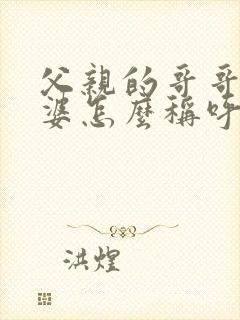 父親的哥哥
婆怎麼稱呼
洪煌